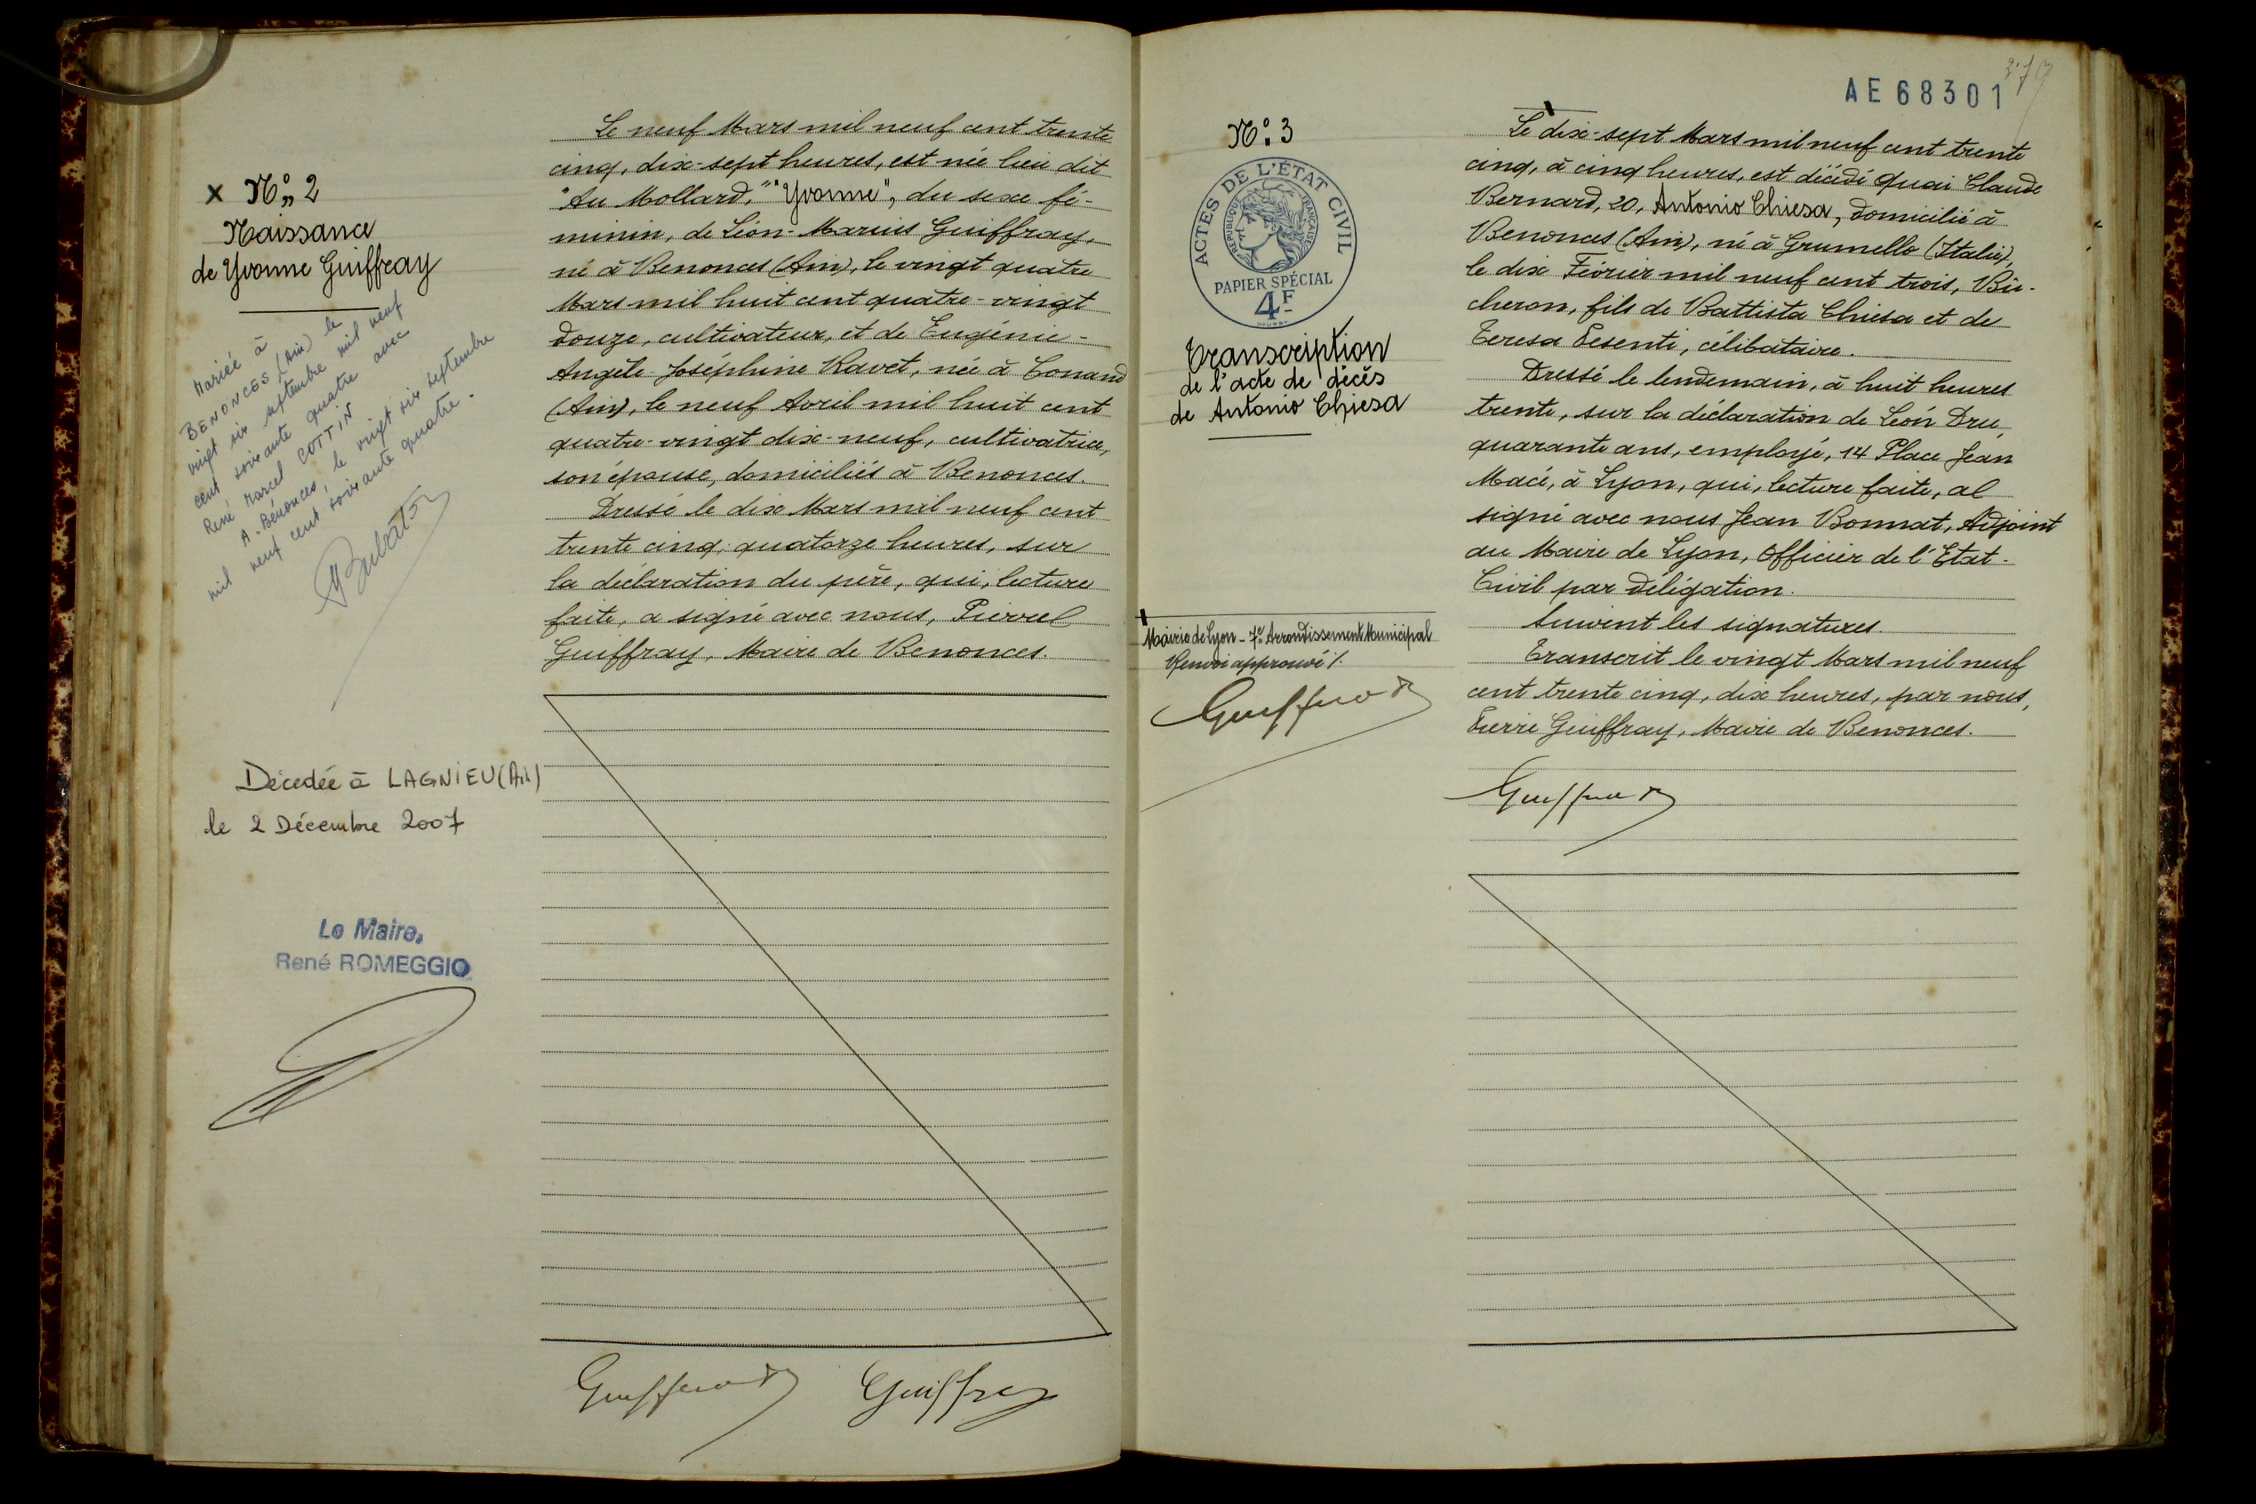 X N° 2
Naissance
de Yvonne Guiffray
Mariée à
BENONCES (Ain) le
vingt six septembre mil neuf
cent soixante quatre avec
René Marcel COTTIN
A. Bénonces, le vingt six septembre
mil neuf cent soixante quatre.
Décédée à LAGNIEU (Ain)
le 2 Décembre 2007
Le Maire,
René ROMEGGIO
Le neuf Mars mil neuf cent trente
cinq, dix-sept heures, est née lieu dit
"Au Mollard," "Yvonne", du sexe fé-
minin, de Léon-Marius Guiffray,
né à Benonces (Ain), le vingt quatre
Mars mil huit cent quatre-vingt
douze, cultivateur, et de Eugénie-
Angèle Joséphine Ravet, née à Conand
(Ain), le neuf Avril mil huit cent
quatre-vingt dix-neuf, cultivatrice,
son épouse, domiciliés à Benonces.
Dressé le dix Mars mil neuf cent
trente cinq, quatorze heures, sur
la déclaration du père, qui, lecture
faite, a signé avec nous, Pierre
Guiffray, Maire de Benonces.
Guiffray Guiffray
AE 68301
N° 3
ACTES DE L'ÉTAT CIVIL
RÉPUBLIQUE FRANÇAISE
PAPIER SPÉCIAL
4F
Transcription
de l'acte de décès
de Antonio Chiesa
Mairie de Lyon - 7e Arrondissement Municipal
Renvoi approuvé /.
Guiffray
Le dix-sept Mars mil neuf cent trente
cinq, à cinq heures, est décédé Quai Claude
Bernard, 20, Antonio Chiesa, domicilié à
Benonces (Ain), né à Grumello (Italie),
le dix Février mil neuf cent trois, Bû-
cheron, fils de Battista Chiesa et de
Teresa Pesenti, célibataire.
Dressé le lendemain, à huit heures
trente, sur la déclaration de Léon Dru,
quarante ans, employé, 14 Place Jean
Macé, à Lyon, qui, lecture faite, a
signé avec nous Jean Bonnat, Adjoint
au Maire de Lyon, Officier de l'Etat-
Civil par délégation.
Suivent les signatures.
Transcrit le vingt Mars mil neuf
cent trente cinq, dix heures, par nous,
Pierre Guiffray, Maire de Benonces.
Guiffray